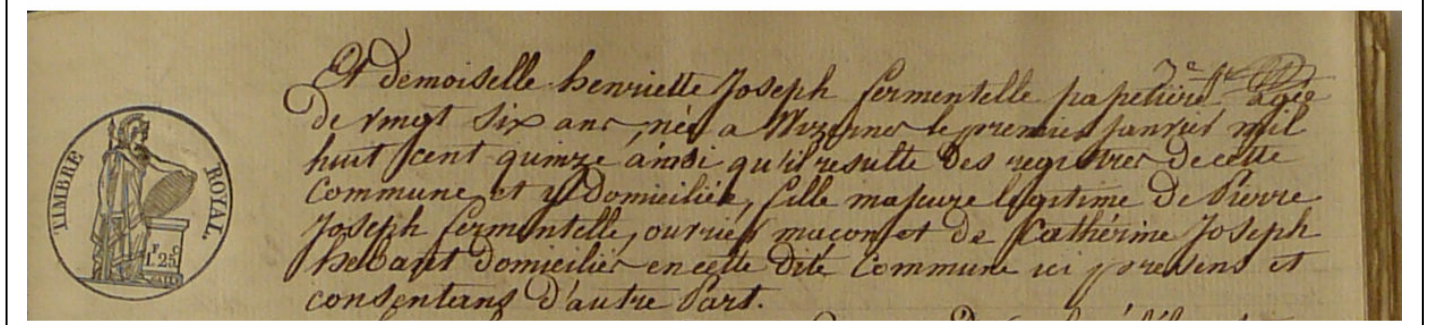 TIMBRE ROYAL.
F. C
1 25
Et demoiselle henriette Joseph fermentelle papetière agée
de vingt six ans, née a Wizernes le premier janvier mil
huit cent quinze ainsi qu'il resulte des registres de cette
Commune et y Domiciliée, fille majeure legitime de Pierre
Joseph fermentelle, ouvrier maçon et de Cathérine Joseph
hebant Domiciliés en cette dite Commune ici presens et
consentans d'autre Part.